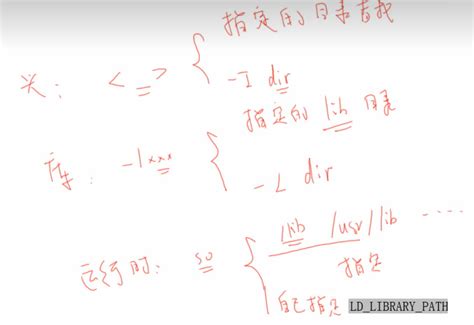 指定的目录查找
头： < = > { -I dir
指定的 lib 目录
库： -lxxx { -L dir
/lib /usr/lib ....
运行时： so { 指定
自己指定 LD_LIBRARY_PATH